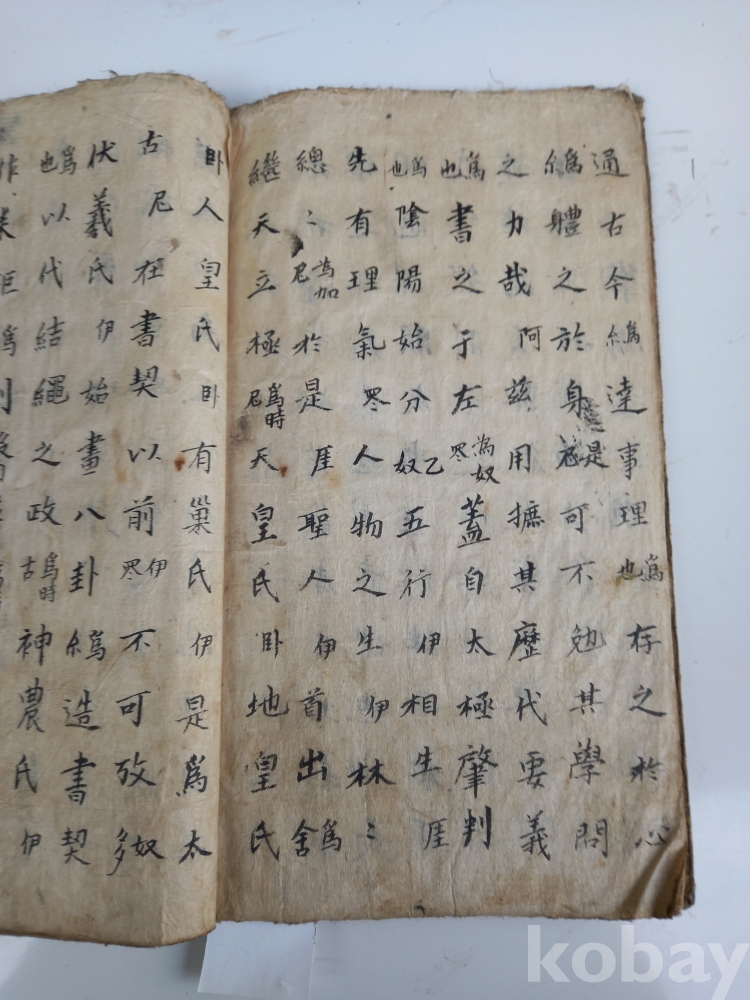 通古今爲糸達事理爲也存之於心
爲糸體之於身是可不勉其學問
之力哉阿玆用摭其歷代要義
爲也書之于左爲奴罙蓋自太極肇判
爲也陰陽始分奴乙五行伊相生厓
先有理氣罙人物之生伊林〻
總〻爲加尼於是厓聖人伊首出爲舍
繼天立極爲時尼天皇氏卧地皇氏
卧人皇氏卧有巢氏伊是爲太
古尼在書契以前伊罙不可攷奴多
伏羲氏伊始畫八卦爲糸造書契
爲也以代結繩之政爲時古神農氏伊
kobay